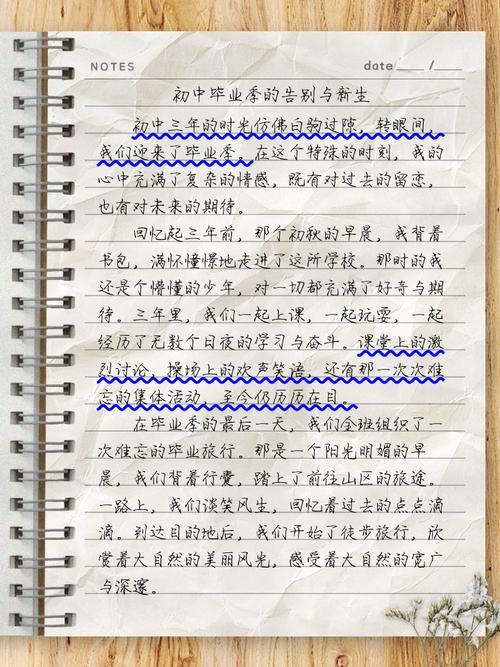 NOTES date____ /___
初中毕业季的告别与新生
初中三年的时光仿佛白驹过隙，转眼间，
我们迎来了毕业季。在这个特殊的时刻，我的
心中充满了复杂的情感，既有对过去的留恋，
也有对未来的期待。
回忆起三年前，那个初秋的早晨，我背着
书包，满怀憧憬地走进了这所学校。那时的我
还是个懵懂的少年，对一切都充满了好奇与期
待。三年里，我们一起上课，一起玩耍，一起
经历了无数个日夜的学习与奋斗。课堂上的激
烈讨论、操场上的欢声笑语，还有那一次次难
忘的集体活动，至今仍历历在目。
在毕业季的最后一天，我们全班组织了一
次难忘的毕业旅行。那是一个阳光明媚的早
晨，我们背着行囊，踏上了前往山区的旅途。
一路上，我们谈笑风生，回忆着过去的点点滴
滴。到达目的地后，我们开始了徒步旅行，欣
赏着大自然的美丽风光，感受着大自然的宽广
与深邃。